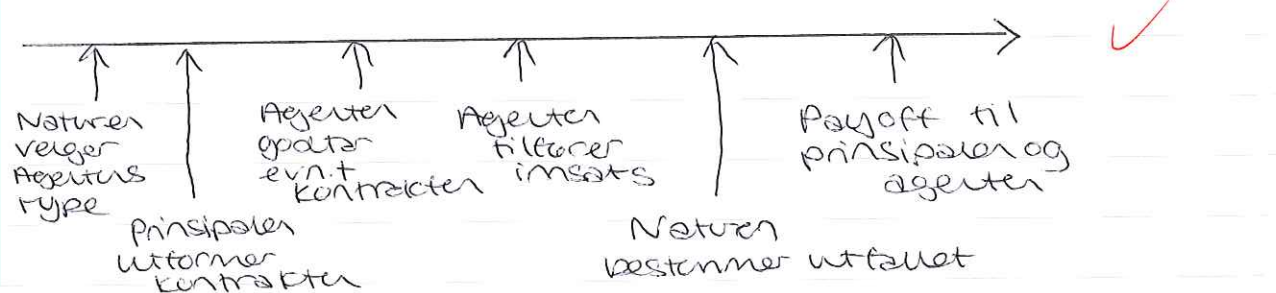 Naturen
velger
Agentens
type
Prinsipalen
utformer
kontrakten
Agenten
godtar
evn.t
kontrakten
Agenten
tilfører
innsats
Naturen
bestemmer utfallet
Payoff til
prinsipalen og
agenten